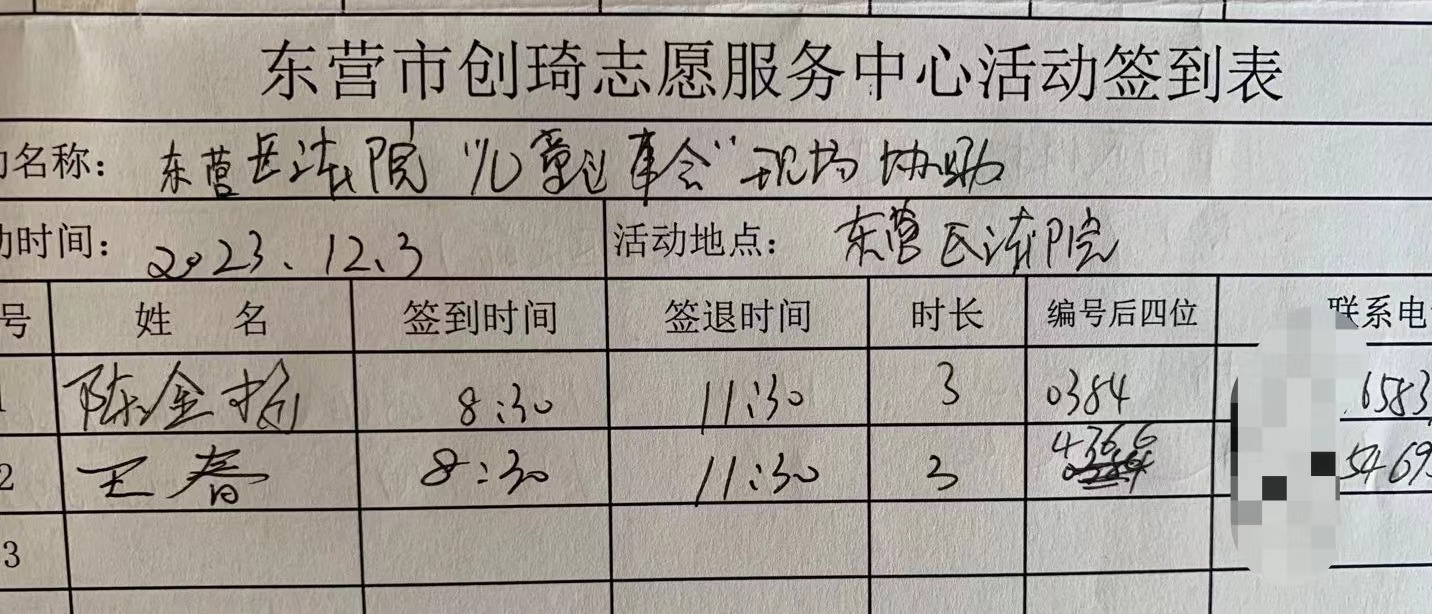 东营市创琦志愿服务中心活动签到表
动名称： 东营区法院“儿童理事会”现场协助
动时间： 2023.12.3 活动地点： 东营区法院
号 姓 名 签到时间 签退时间 时长 编号后四位 联系电
1 陈金 8:30 11:30 3 0384 6583
2 王春 8:30 11:30 3 4366 5469
3